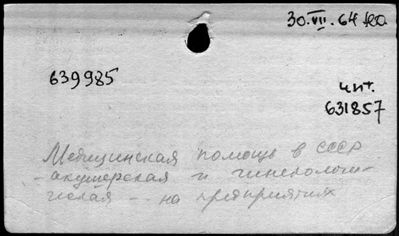 30.VII.64
639985
чит.
631857
Медицинская помощь в СССР
- акушерская и гинекологи-
ческая -- на предприятиях